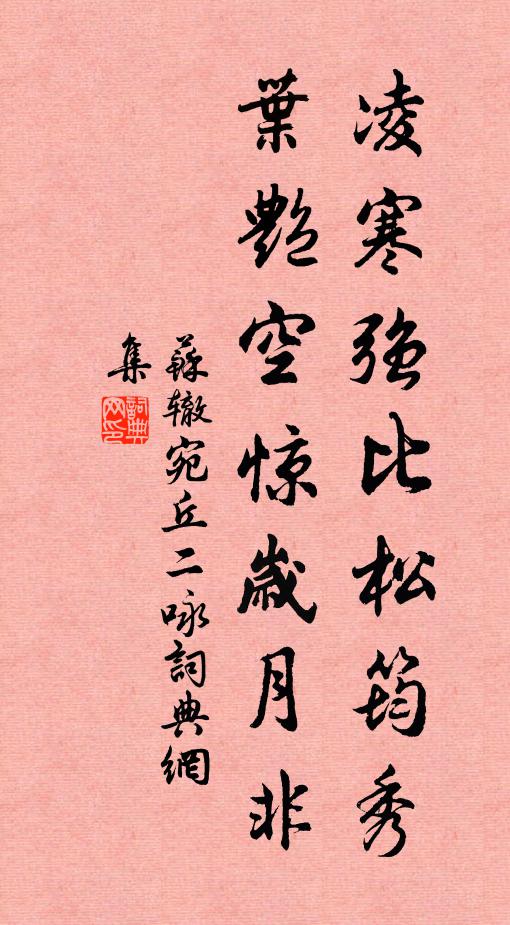 凌寒強比松筠秀
葉艷空惊歲月非
蘇辙宛丘二咏詞典網
集
詞典网印